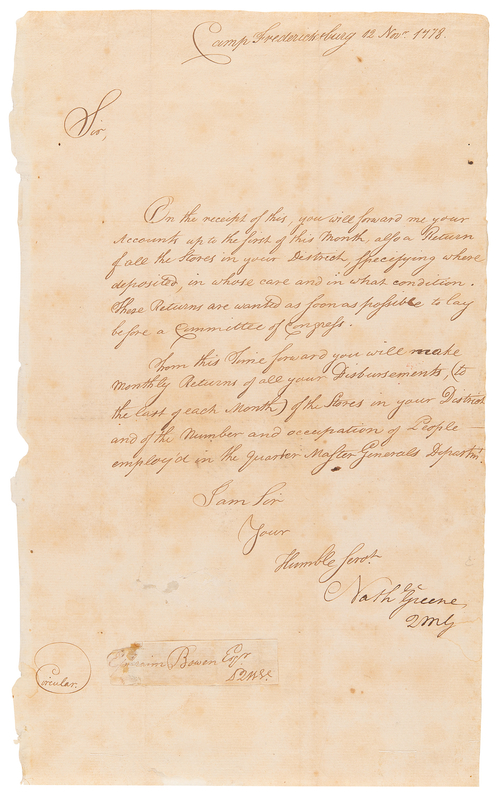 Camp Fredericksburg 12 Novr. 1778.
Sir,
On the receipt of this, you will forward me your
Accounts up to the first of this Month, also a Return
of all the Stores in your District, specifying where
deposited, in whose care and in what condition.
These Returns are wanted as soon as possible to lay
before a Committee of Congress.
From this Time forward you will make
Monthly Returns of all your Disbursements, (to
the last of each Month) of the Stores in your District
and of the Number and occupation of People
employ'd in the Quarter Master Generals Departmt.
I am Sir
Your
Humble Servt.
Nathl. Greene
QMG
Ephraim Bowen Esqr
Circular.